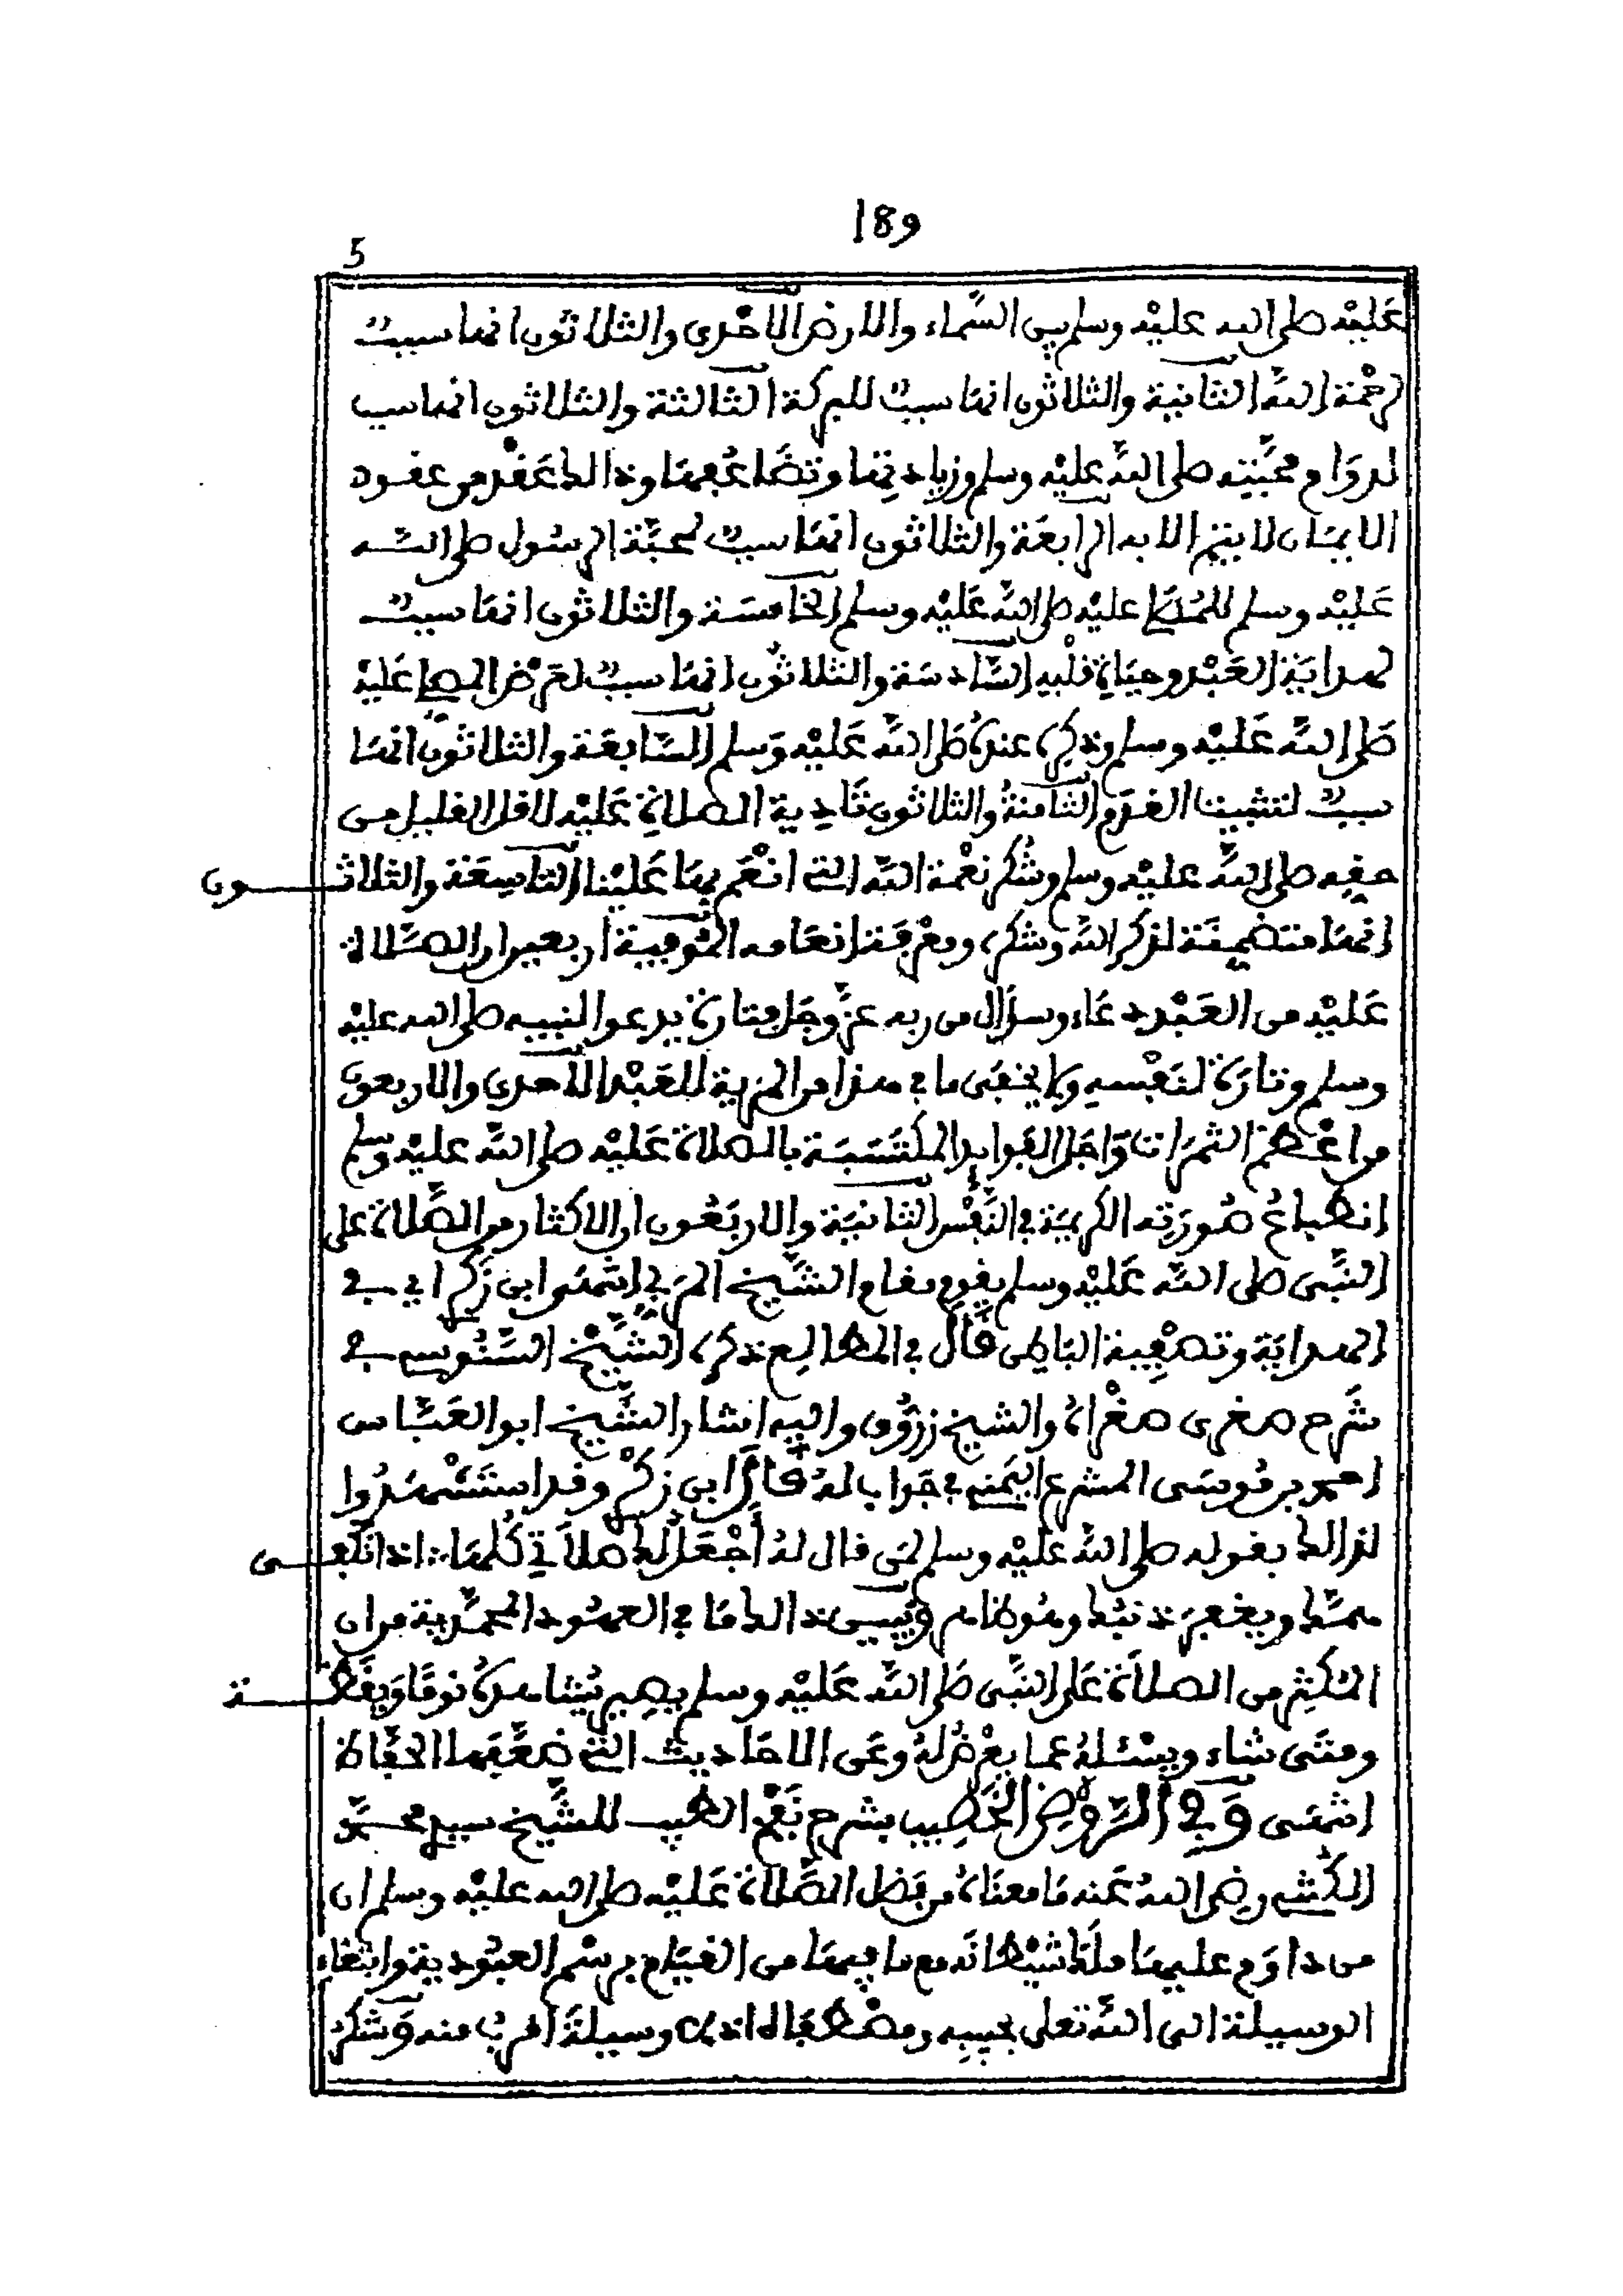 189
5
عَليْه صلى الله عليْه وسلم بين السَّماء والارض الاحْدى والثلاثون انها سببٌ
لرحْمة اللهِ الثانية والثلاثون انهَا سببٌ للبركة الثالثة والثلاثون انها سبب
لدوَام محبَّتِه صلى اللهُ عليْه وسلم وزيادتِها وتضَاعُفِهَا وذالك عَقْد من عقود
الايمَان لا يتم الا به الرابعَة والثلاثون انهَا سببٌ لمحبَّة الرسُول صلى اللـه
عَليْه وسلم للمُصَلِّ عليْه صلى اللهُ عَليْه وسلم الخامسَة والثلاثون انهَا سببٌ
لهدايَة العَبْد وحيَاة قلْبه السَّادسَة والثلاثون انهَا سببٌ لعَرْض المصلِ عَليْه
صَلى اللهُ عَليْه وسلم وذكرِه عندهُ صَلى اللهُ عَليْه وَسلم السَّابعَة والثلاثون انهَا
سببٌ لتثبيت القدَم الثامنةُ والثلاثون تَادِية الصلاة عَليْه لاقل القليل من
حقِه صلى اللهُ عليْه وسلم وشُكر نعْمة اللهِ التي انْعَم بِهَا عَليْنا التاسِعَة والثلاثـون
انهَا متضمِنَة لذكر اللهِ وشكرِه ومعْرفَة انعَامه المُوفية اربعين ان الصَّلاة
عَليْه من العَبْد دعَاء وسؤَال من ربه عزَّ وجَل فتارة يدعوا لنبيه صلى الله عليْه
وسلم وتارَة لنفْسهِ ولا يخفَى ما في هذا من المزية للعَبْد الاحدى والاربعون
من اعْظم الثمَرات وَاجَل الفَوايد المكتسَبَة بالصلاة عَليْه صلى اللهُ عليْه وسلم
انطباعُ صُورَته الكريمَة في النَّفْس الثانيَة والاربَعُون ان الاكثار من الصَّلاة على
النَّبى صلى اللهُ عَليْه وسلم يقوم مقام الشَّيخ المرَبِّي انتهَى ابن زَكري في
الهدايَة وتصْفِية البَاطن قَالَ في المطالِع ذكره الشَّيْخ السَّنُوسِي في
شَرْح صغرى صغْراهُ والشيخ زرُّوق واليه اشار الشَّيْخ ابو العَبَّاس
احمد بن مُوسَى المشرع اليَمَني في جَواب لهُ قَالَ ابن زكْري وقد استَشْهَدُوا
لذالك بقوله صلى اللهُ عليْه وسلم لمَن قال لهُ أجْعَل لكَ صلاَتي كُلهَا: اذا تكْفـى
همَّك ويغفرَ ذنبُك وهُو ظاهر وَيُبين ذالك مَا في العهُود المحمَّدية من ان
المُكثِر من الصلاَة عَلى النَّبى صَلى اللهُ عَليْه وسلم يصِير يُشَاهدهُ نومًا وَيقَظـة
ومتَى شَاء ويسْئلهُ عما يعْرضُ لهُ وعَن الاحَاديث التي ضعَّفَها الحفَّاظ
انتهَى وَفِي الرَّوْضِ الخَطِيب بشرح نَفْح الطيب للشَّيخ سيدي محمَّد
الكُنْتي رضِى اللهُ عَنه مَا معنَاهُ من فضل الصَّلاَة عَليْه صلى الله عليْه وسلم ان
من داوَم عليهَا ملَكَ شيْطانَه مع ما فِيهَا من القيَام برسْم العبُودية وابتغاء
الوسيلة الى اللهِ تعلى بحبيبِه ومصْطفَاه اذ لا وسيلةَ اقربُ منه وَشكر